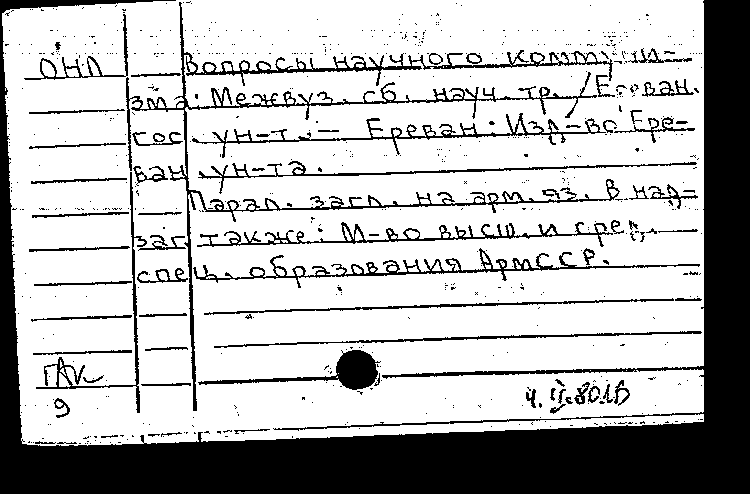 ОНЛ Вопросы научного коммуни-
зма: Межвуз. сб. науч. тр. / Ереван.
гос. ун-т. — Ереван: Изд-во Ере-
ван. ун-та.
Парал. загл. на арм. яз. В над-
заг. также: М-во высш. и сред.
спец. образования АрмССР.
ГАК
9